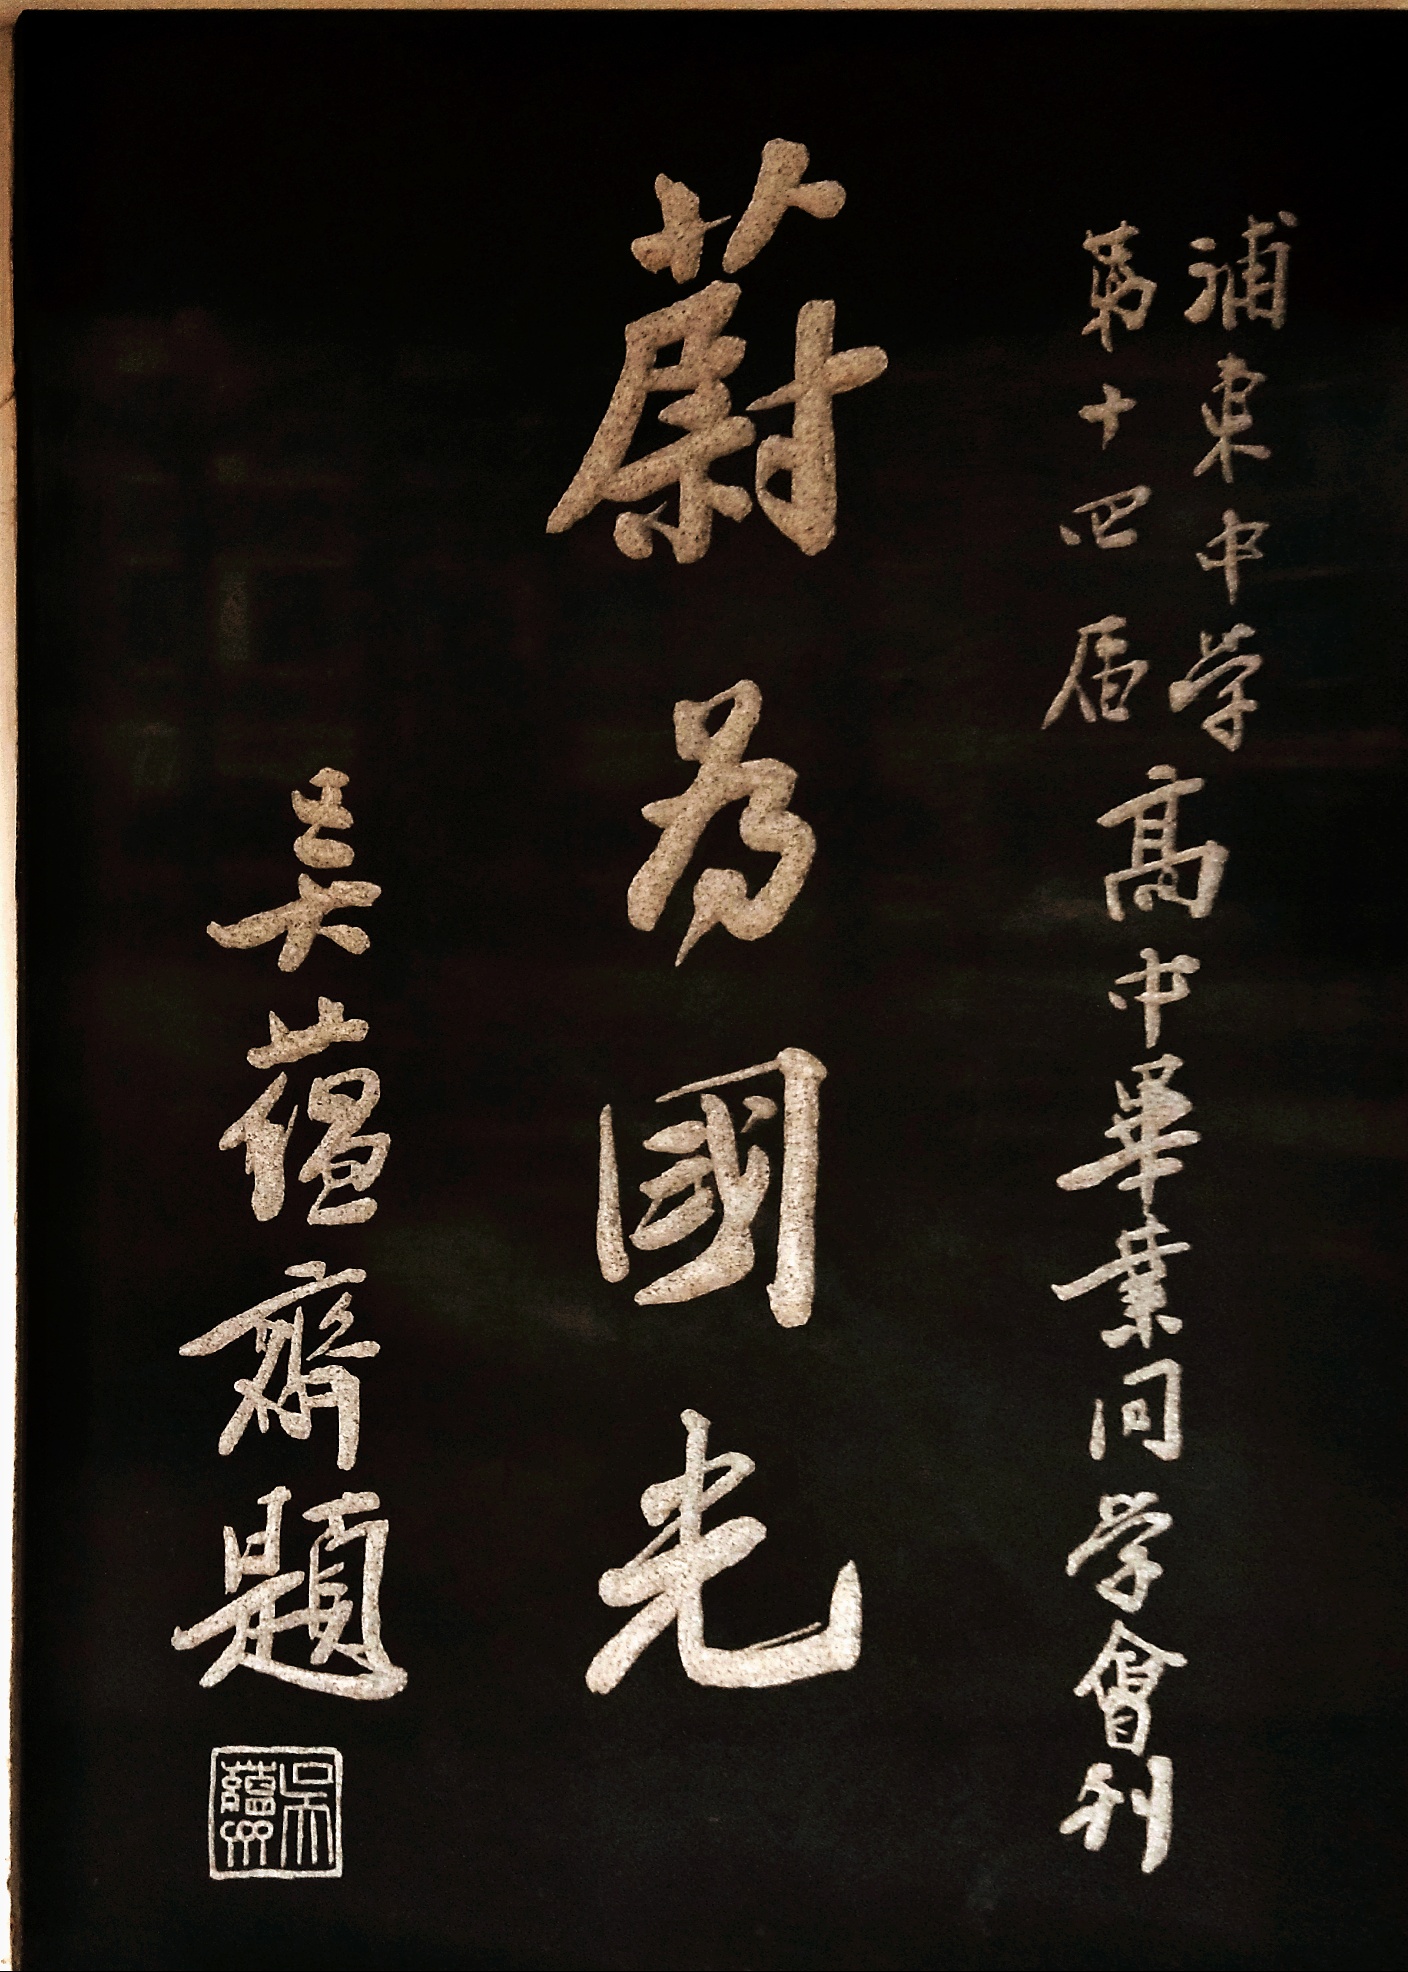 浦東中学
第十四屆
高中畢業同学會刊
蔚為國光
吳蘊齋題
吳蘊齋